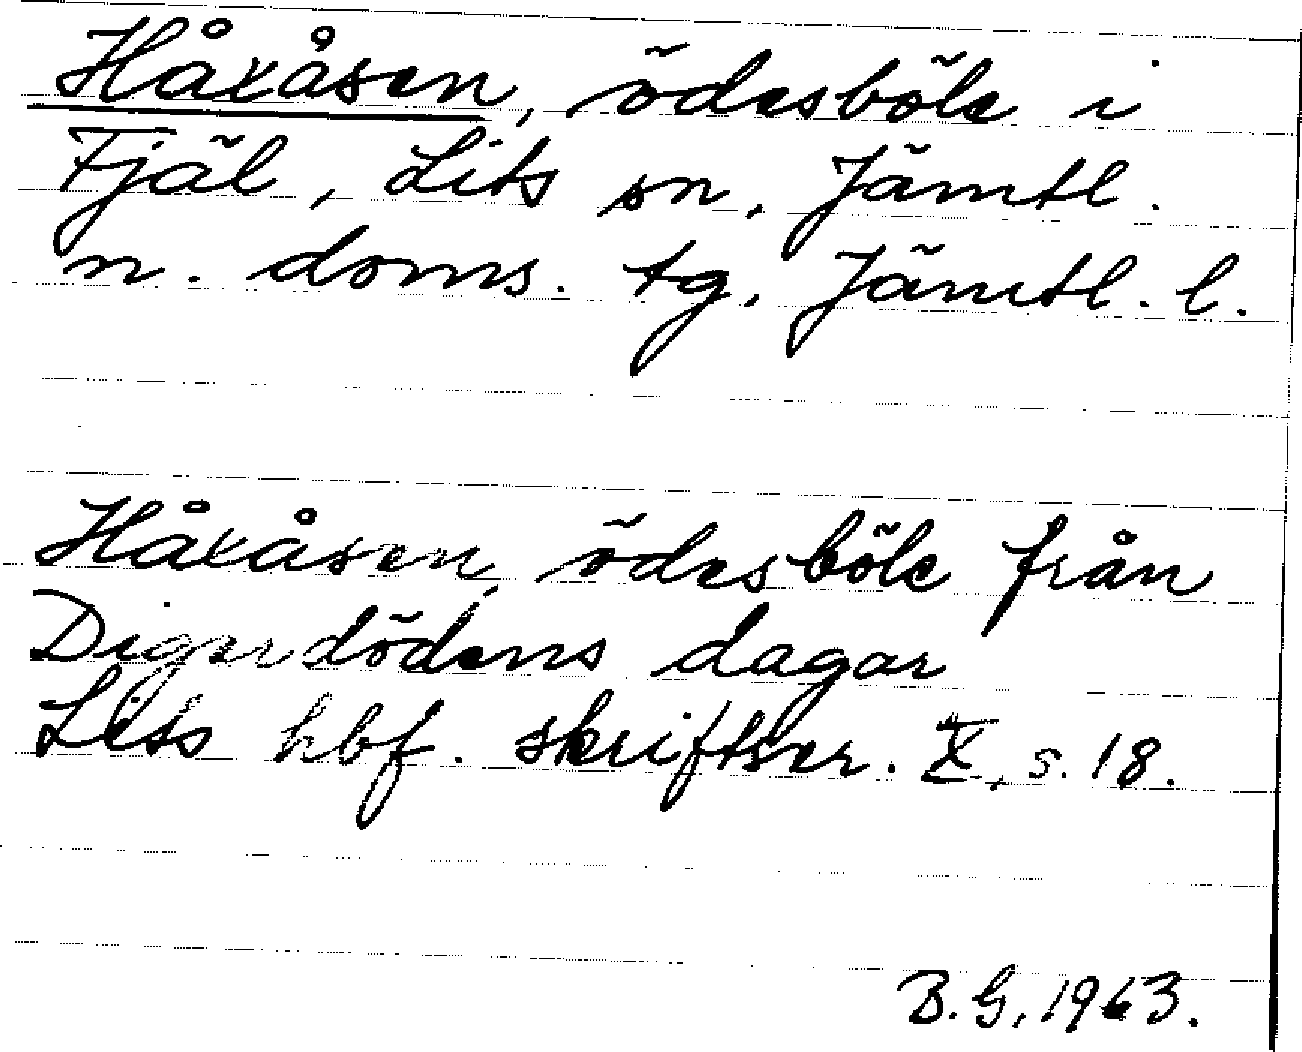 Håxåsen, ödesböle i
Fjäl, Lits sn, Jämtl.
n. doms. tg, Jämtl. l.
Håxåsen, ödesböle från
Digerdödens dagar
Liss hbf. skriftser. X, s. 18.
B.G. 1963.